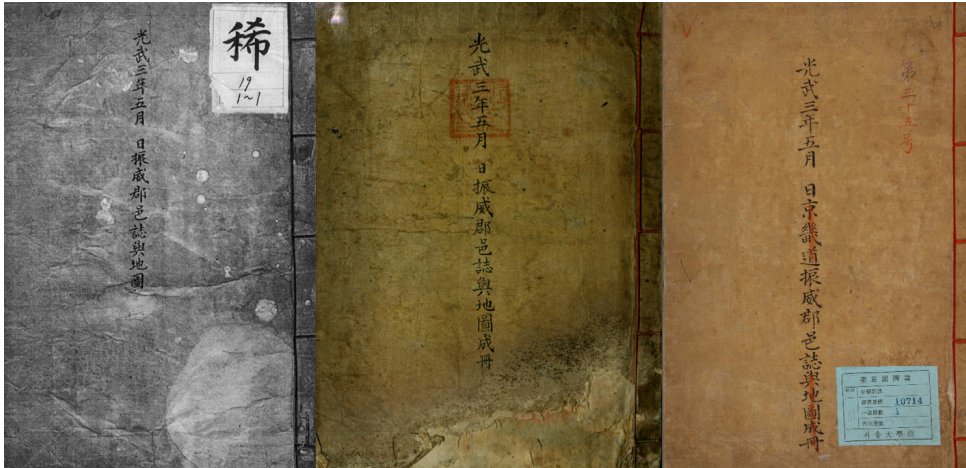 光武三年五月 日振威郡邑誌與地圖
稀
19
1~1
光武三年五月 日振威郡邑誌與地圖成冊
第三十五号
光武三年五月 日京畿道振威郡邑誌與地圖成冊
奎章閣圖書
10714
1
서울大學校